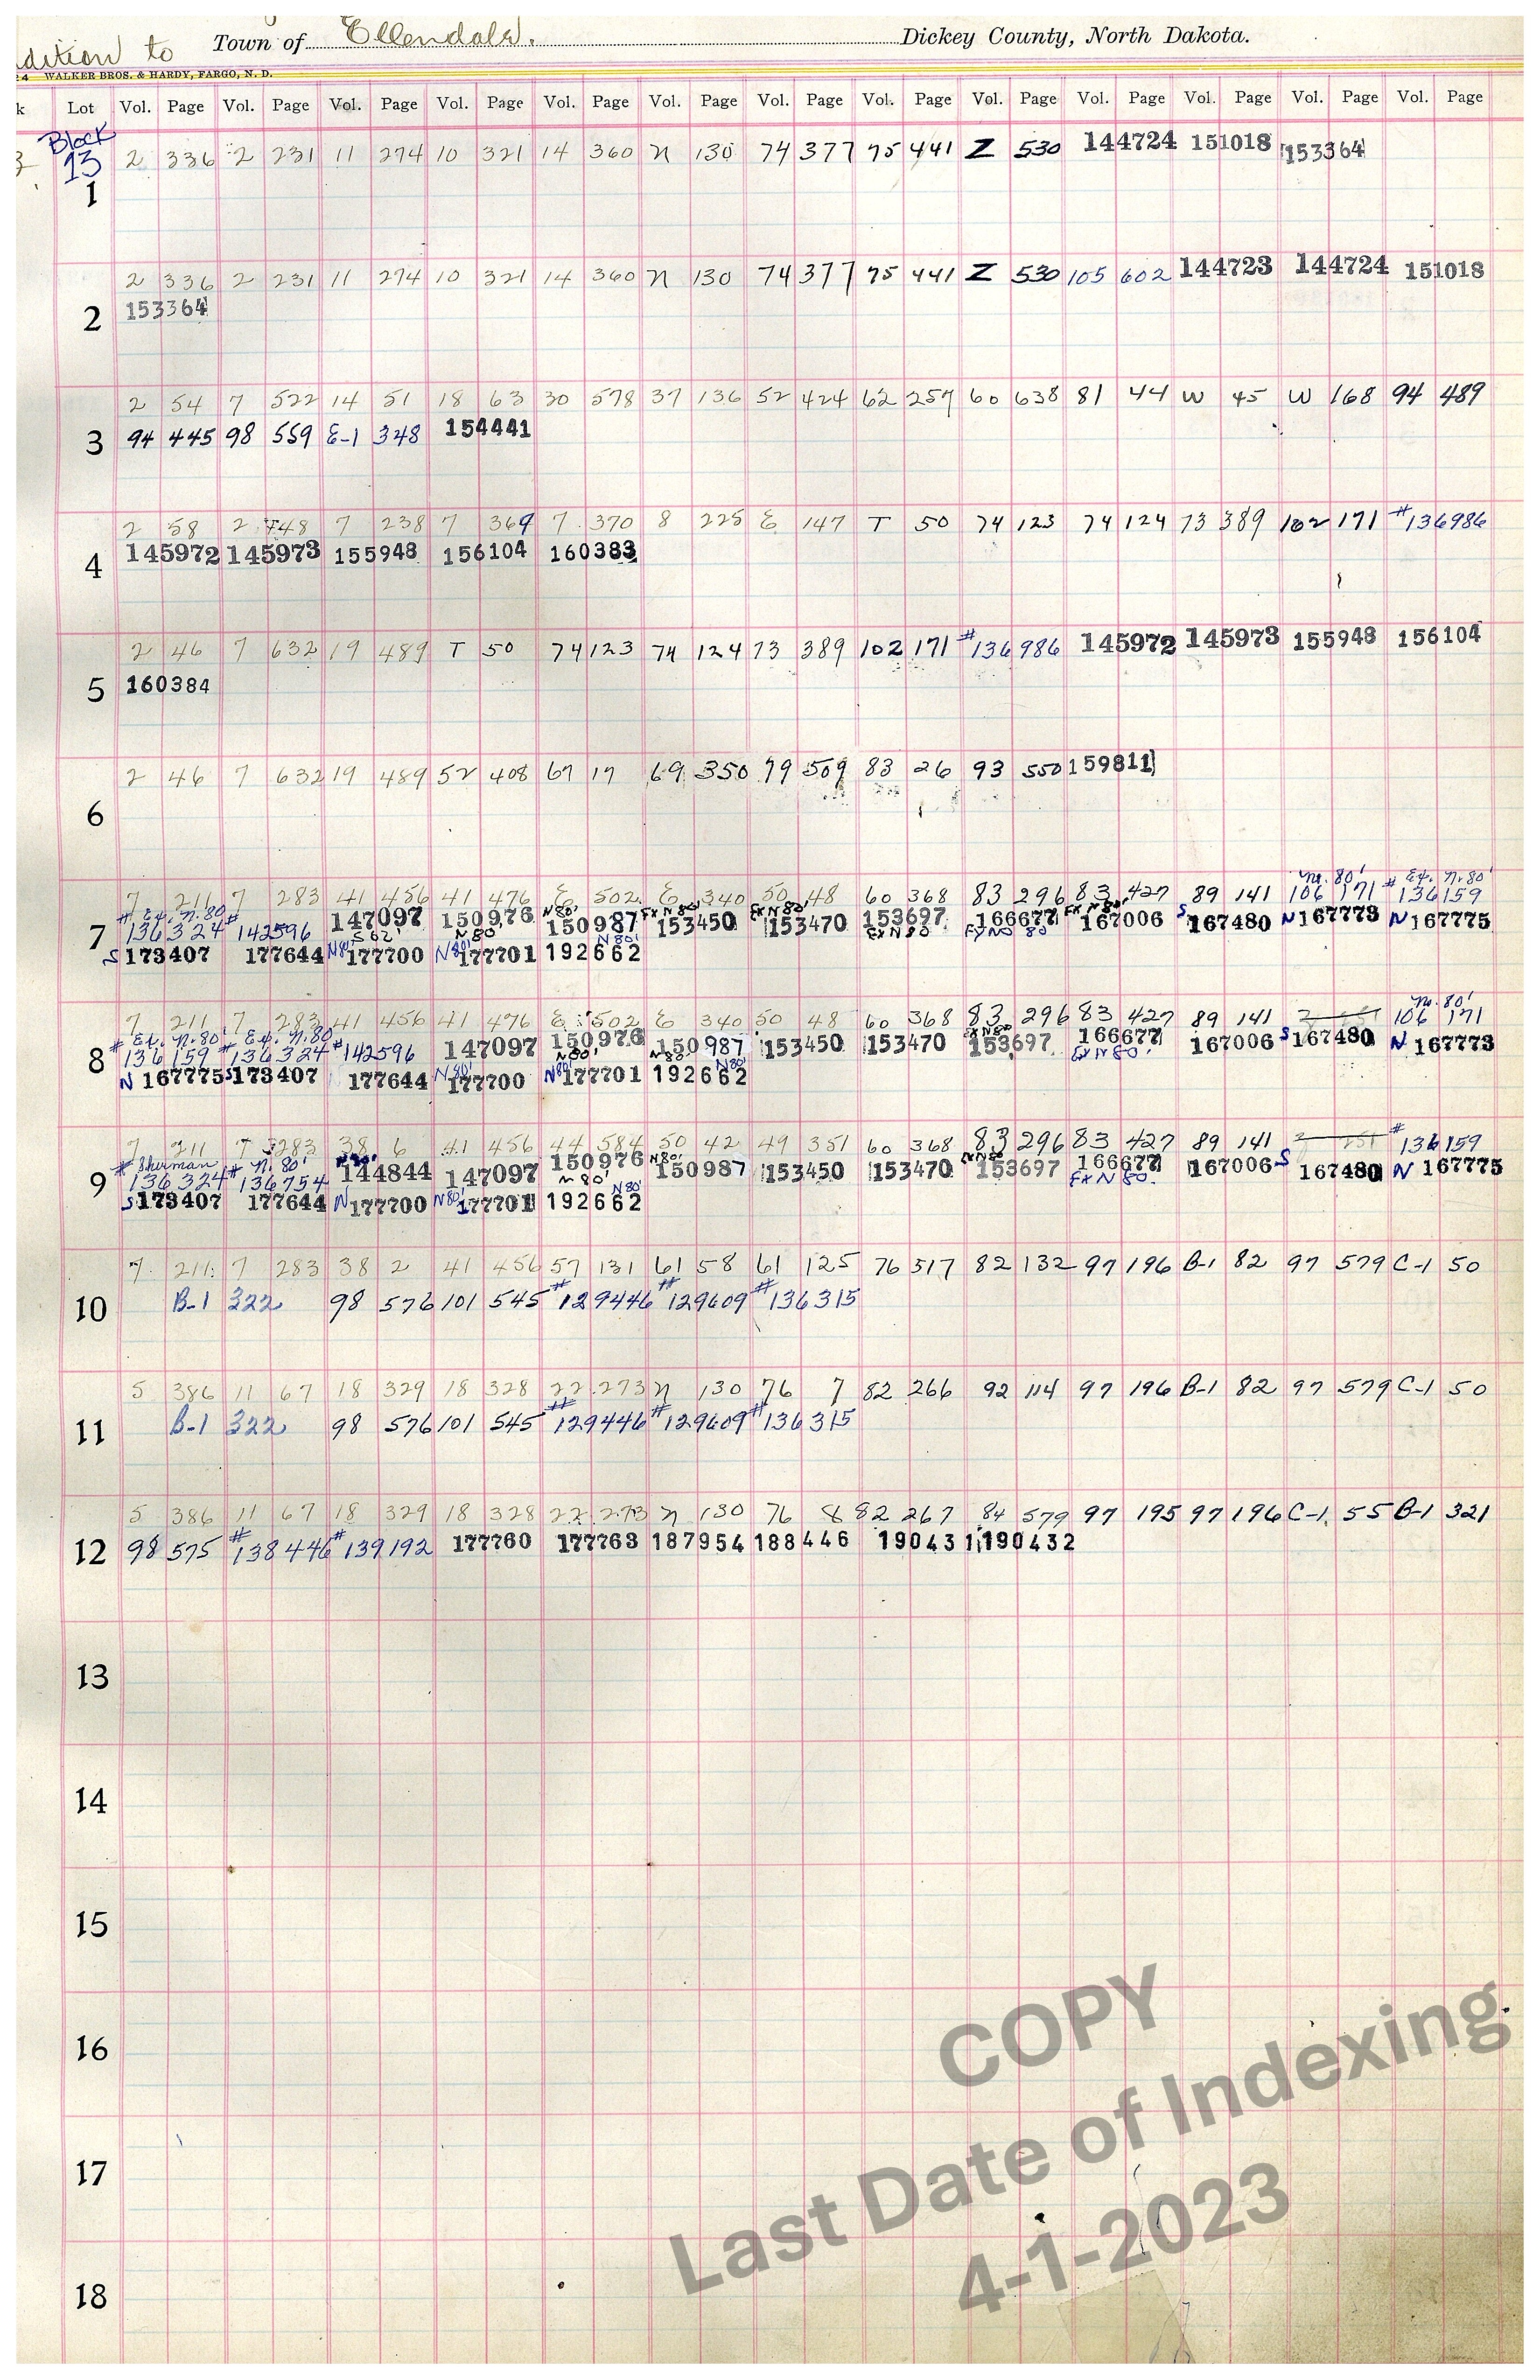 dition to Town of Ellendale. Dickey County, North Dakota.
24 WALKER BROS. & HARDY, FARGO, N. D.
k Lot Vol. Page Vol. Page Vol. Page Vol. Page Vol. Page Vol. Page Vol. Page Vol. Page Vol. Page Vol. Page Vol. Page Vol. Page Vol. Page
Block
13 2 336 2 231 11 274 10 321 14 360 N 130 74 377 75 441 Z 530 144724 151018 153364
1
2 336 2 231 11 274 10 321 14 360 N 130 74 377 75 441 Z 530 105 602 144723 144724 151018
2 153364
2 54 7 522 14 51 18 63 30 578 37 136 52 424 62 257 60 638 81 44 W 45 W 168 94 489
3 94 445 98 559 E-1 348 154441
2 58 2 748 7 238 7 369 7 370 8 225 E 147 T 50 74 123 74 124 73 389 102 171 #136986
4 145972 145973 155948 156104 160383
2 46 7 632 19 489 T 50 74 123 74 124 73 389 102 171 #136986 145972 145973 155948 156104
5 160384
2 46 7 632 19 489 52 408 67 17 69 350 79 509 83 26 93 550 159811
6
No. 80' Ex. N. 80'
7 211 7 283 41 456 41 476 E 502 E 340 50 48 60 368 83 296 83 427 89 141 106 171 #136159
# Ex. N. 80 # N 80' Ex N 80' Ex N 80' Ex N 80' S
7 136324 142596 147097 150976 150987 153450 153470 153697 166677 167006 167480 N 167773 N 167775
S 62' N 80' N 80' Ex N 80 Ex NO 80'
S 173407 177644 N80' 177700 N80' 177701 192662
No. 80'
7 211 7 283 41 456 41 476 E 502 E 340 50 48 60 368 83 296 83 427 89 141 106 171
# Ex. N. 80' Ex. N. 80 Ex N 80
8 #136159 #136324 #142596 147097 150976 150987 153450 153470 153697 166677 167006 S 167480 N 167773
N 80' N 80' N 80' Ex N 80'
N 167775 S 173407 177644 N80' 177700 N80' 177701 192662
7 211 7 283 38 6 41 456 44 584 50 42 49 351 60 368 83 296 83 427 89 141 2 251 #136159
# Sherman # N. 80' N 80' N 80' Ex N 80
9 136324 136754 144844 147097 150976 150987 153450 153470 153697 166677 167006 S 167480 N 167775
N 80' N 80' Ex N 80.
S 173407 177644 N 177700 N80' 177701 192662
7 211 7 283 38 2 41 456 57 131 61 58 61 125 76 517 82 132 97 196 B-1 82 97 579 C-1 50
10 B-1 322 98 576 101 545 #129446 #129609 #136315
5 386 11 67 18 329 18 328 22 273 N 130 76 7 82 266 92 114 97 196 B-1 82 97 579 C-1 50
11 B-1 322 98 576 101 545 #129446 #129609 #136315
5 386 11 67 18 329 18 328 22 273 N 130 76 8 82 267 84 579 97 195 97 196 C-1 55 B-1 321
12 98 575 #138446 #139192 177760 177763 187954 188446 190431 190432
13
14
15
16
17
18
COPY
Last Date of Indexing
4-1-2023